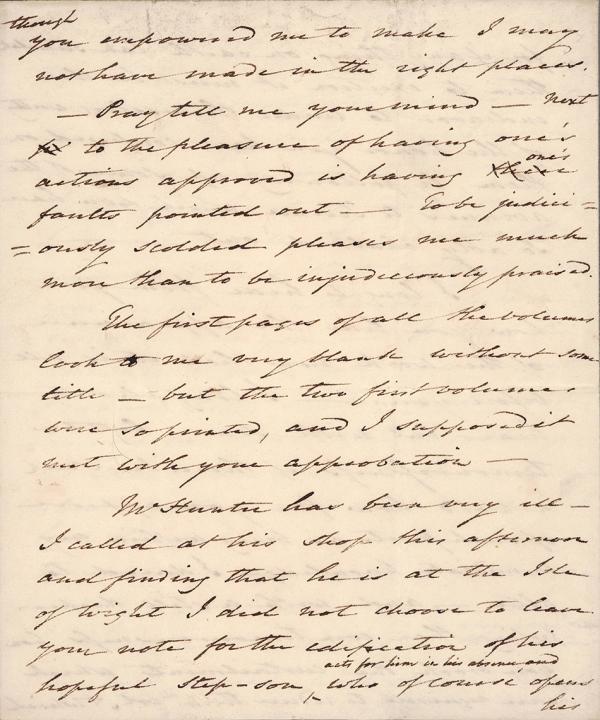 though
you empowered me to make I may
not have made in the right places.
— Pray tell me your mind — Next
to the pleasure of having one's
actions approved is having one's
faults pointed out — To be judici=
=ously scolded pleases me much
more than to be injudiciously praised.
The first pages of all the volumes
look to me very blank without some
title — but the two first volumes
were so printed, and I supposed it
met with your approbation —
Mr Hunter has been very ill —
I called at his shop this afternoon
and finding that he is at the Isle
of Wight I did not choose to leave
your note for the edification of his
acts for him in his absence and
hopeful step-son ^ who of course opens
his